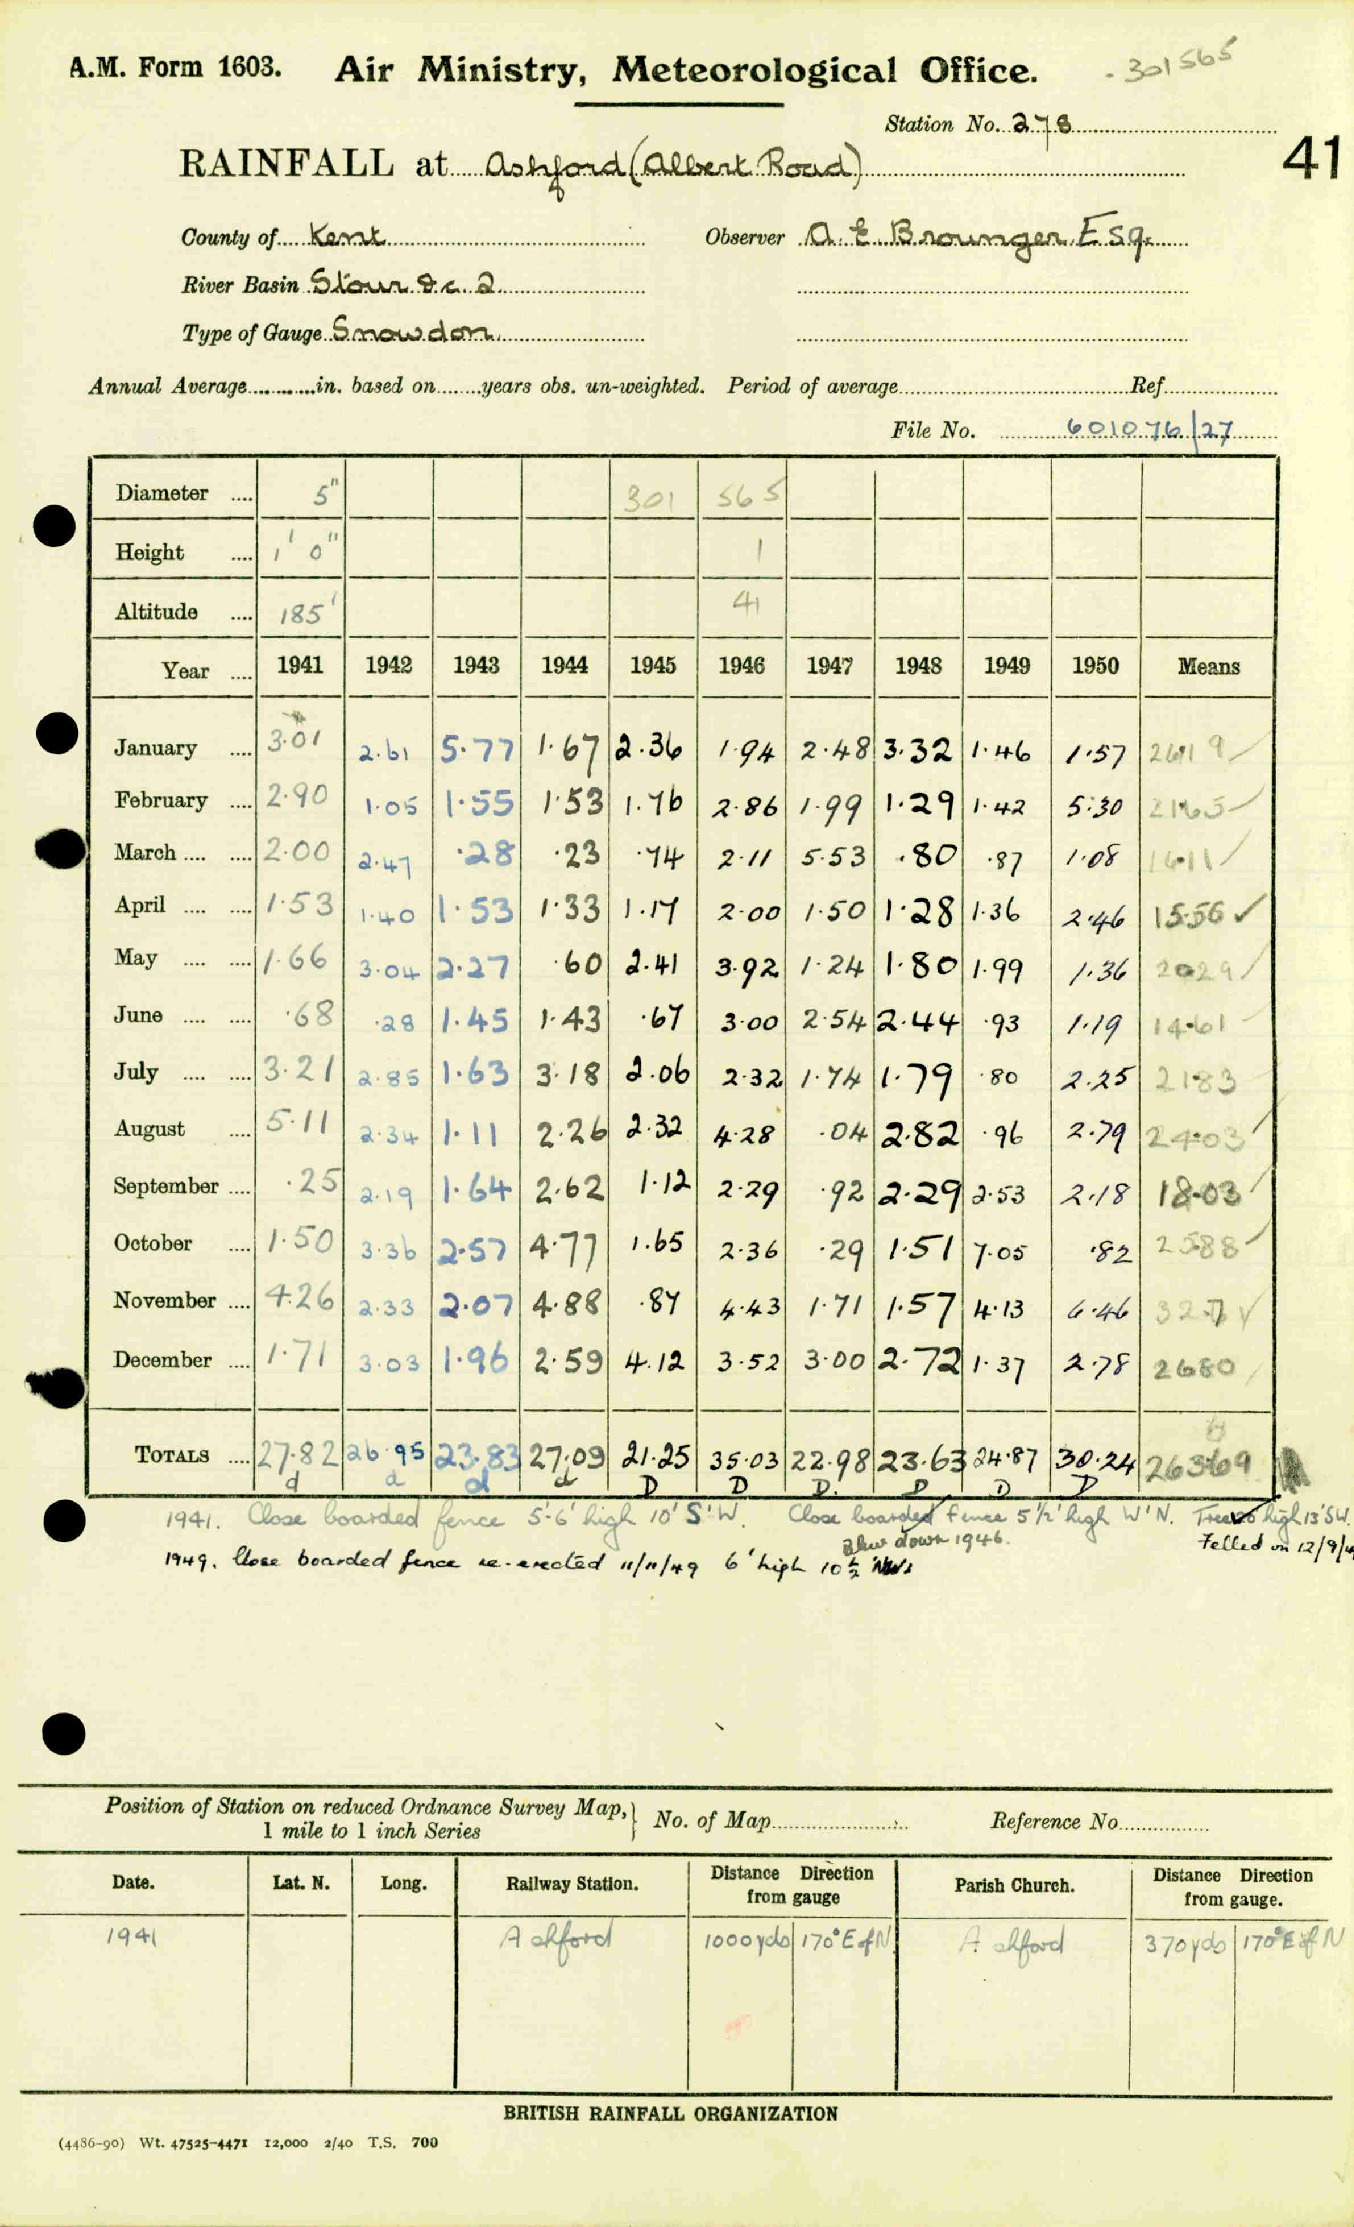 A.M. Form 1603. Air Ministry, Meteorological Office. 301565
Station No. 278
41
RAINFALL at Ashford (Albert Road)
County of Kent Observer A. E. Brounger Esq.
River Basin Stour &c. 2
Type of Gauge Snowdon
Annual Average in. based on years obs. un-weighted. Period of average Ref.
File No. 601076/27
Diameter 5" 301 565
Height 1' 0" 1
Altitude 185' 41
Year 1941 1942 1943 1944 1945 1946 1947 1948 1949 1950 Means
January 3.01 2.61 5.77 1.67 2.36 1.94 2.48 3.32 1.46 1.57 2619
February 2.90 1.05 1.55 1.53 1.76 2.86 1.99 1.29 1.42 5.30 2165
March 2.00 2.47 .28 .23 .74 2.11 5.53 .80 .87 1.08 1611
April 1.53 1.40 1.53 1.33 1.17 2.00 1.50 1.28 1.36 2.46 15.56
May 1.66 3.04 2.27 .60 2.41 3.92 1.24 1.80 1.99 1.36 2029
June .68 .28 1.45 1.43 .67 3.00 2.54 2.44 .93 1.19 14.61
July 3.21 2.85 1.63 3.18 2.06 2.32 1.74 1.79 .80 2.25 2183
August 5.11 2.34 1.11 2.26 2.32 4.28 .04 2.82 .96 2.79 24.03
September .25 2.19 1.64 2.62 1.12 2.29 .92 2.29 2.53 2.18 18.03
October 1.50 3.36 2.57 4.77 1.65 2.36 .29 1.51 7.05 .82 2588
November 4.26 2.33 2.07 4.88 .87 4.43 1.71 1.57 4.13 6.46 32.71
December 1.71 3.03 1.96 2.59 4.12 3.52 3.00 2.72 1.37 2.78 2680
TOTALS 27.82 26.95 23.83 27.09 21.25 35.03 22.98 23.63 24.87 30.24 26369
d d d d D D D. D D D
1941. Close boarded fence 5'-6' high 10' S'W. Close boarded fence 5 1/2' high W'N. Tree high 13' SW.
Blew down 1946. Felled on 12/9/4
1949. Close boarded fence re-erected 11/11/49 6' high 10 1/2
Position of Station on reduced Ordnance Survey Map,
1 mile to 1 inch Series
No. of Map Reference No.
Date. Lat. N. Long. Railway Station. Distance Direction from gauge Parish Church. Distance Direction from gauge.
1941 Ashford 1000 yds 170° E of N Ashford 370 yds 170° E of N
BRITISH RAINFALL ORGANIZATION
(4486-90) Wt. 47525-4471 12,000 2/40 T.S. 700